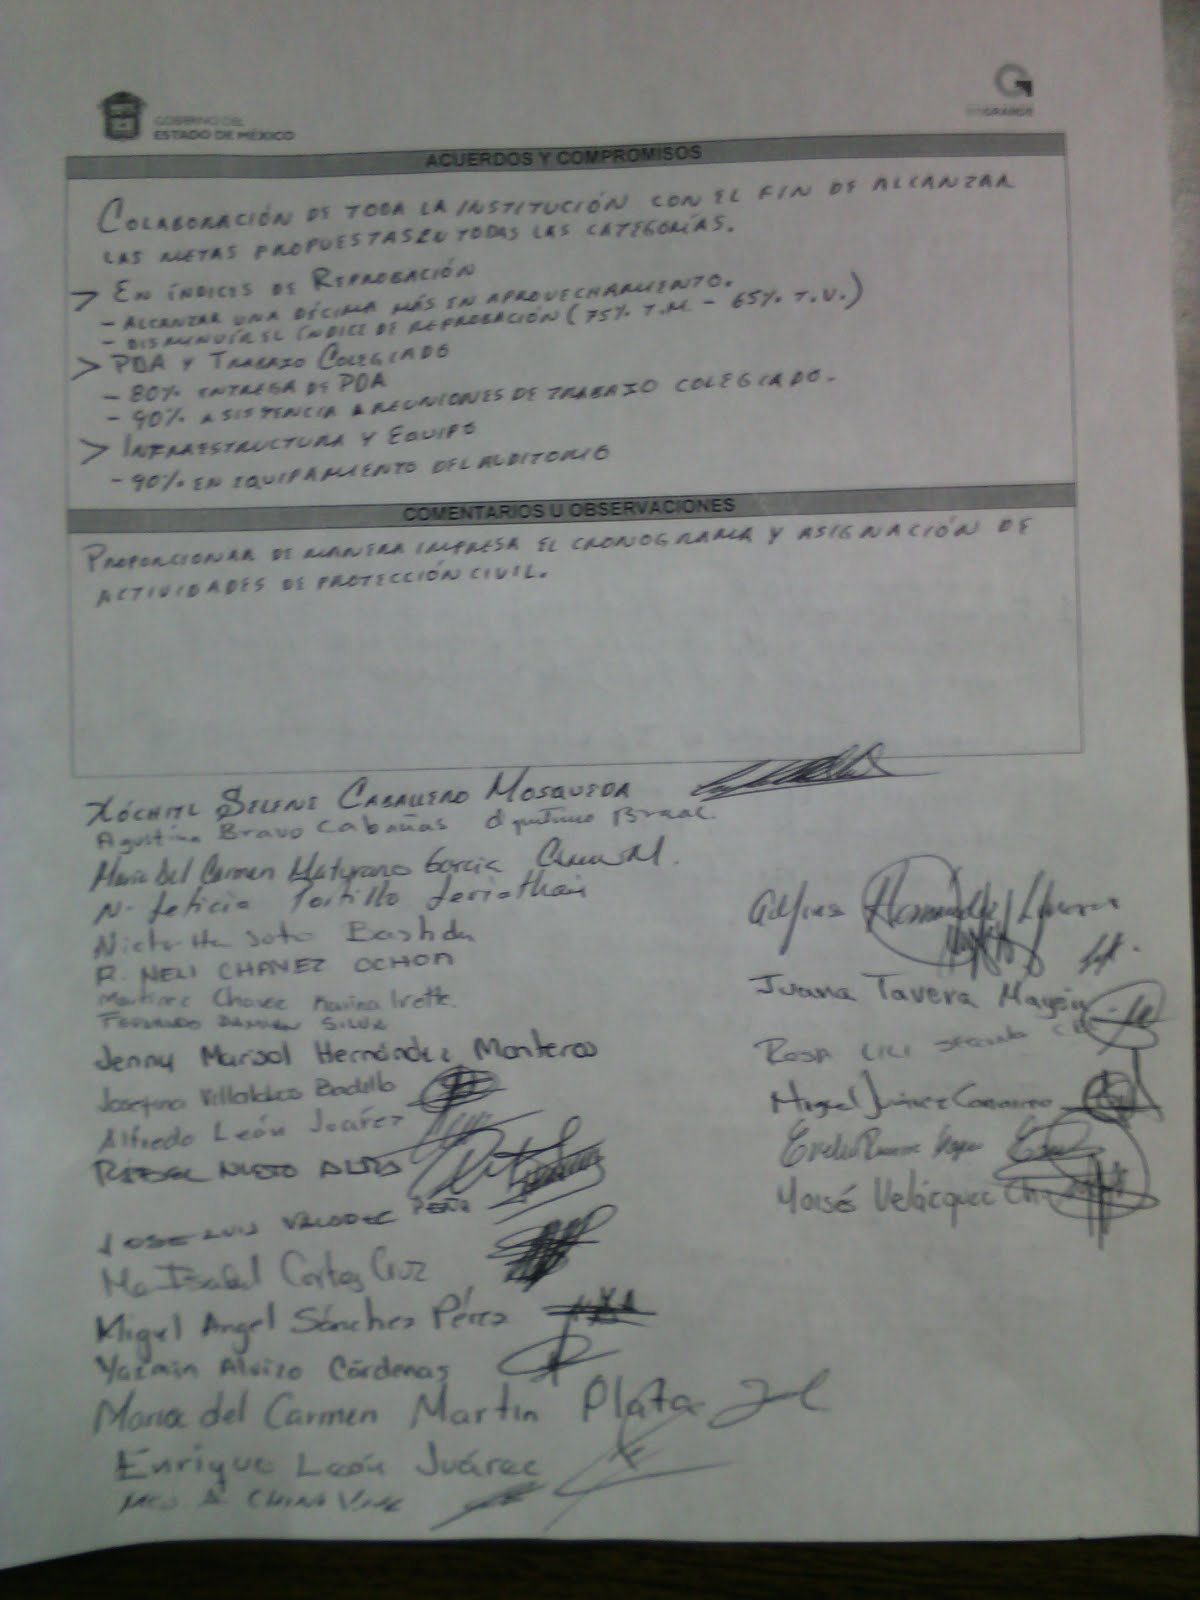 GOBIERNO DEL
ESTADO DE MÉXICO
GRANDE
ACUERDOS Y COMPROMISOS
COLABORACIÓN DE TODA LA INSTITUCIÓN CON EL FIN DE ALCANZAR
LAS METAS PROPUESTAS EN TODAS LAS CATEGORÍAS.
> EN ÍNDICES DE REPROBACIÓN
- ALCANZAR UNA DÉCIMA MÁS EN APROVECHAMIENTO.
- DISMINUIR EL ÍNDICE DE REPROBACIÓN (75% T.M. - 65% T.V.)
> PDA Y TRABAJO COLEGIADO
- 80% ENTREGA DE PDA
- 90% ASISTENCIA A REUNIONES DE TRABAJO COLEGIADO.
> INFRAESTRUCTURA Y EQUIPO
- 90% EN EQUIPAMIENTO DEL AUDITORIO
COMENTARIOS U OBSERVACIONES
PROPORCIONAR DE MANERA IMPRESA EL CRONOGRAMA Y ASIGNACIÓN DE
ACTIVIDADES DE PROTECCIÓN CIVIL.
XÓCHITL SELENE CABALLERO MOSQUEDA
Agustina Bravo Cabañas
Maria del Carmen García
N. Leticia Portillo
Soto Bastida
R. NELI CHAVEZ OCHOA
Martinez Chavez Karina Ivette
FERNANDO DAMIAN SILVA
Jenny Marisol Hernández Monteros
Josefina Villaldco Badillo
Alfredo León Juárez
RAFAEL NIETO
JOSE LUIS VALDEZ PEÑA
Ma Isabel Cortes Cruz
Miguel Angel Sánchez Pérez
Yazmin Alvizo Cárdenas
Maria del Carmen Martin Plata
Enrique León Juárez
Hernández
Juana Tavera Mayén
ROSA LILI SEGUNDO
Miguel Juárez
Moisés Velázquez Ch